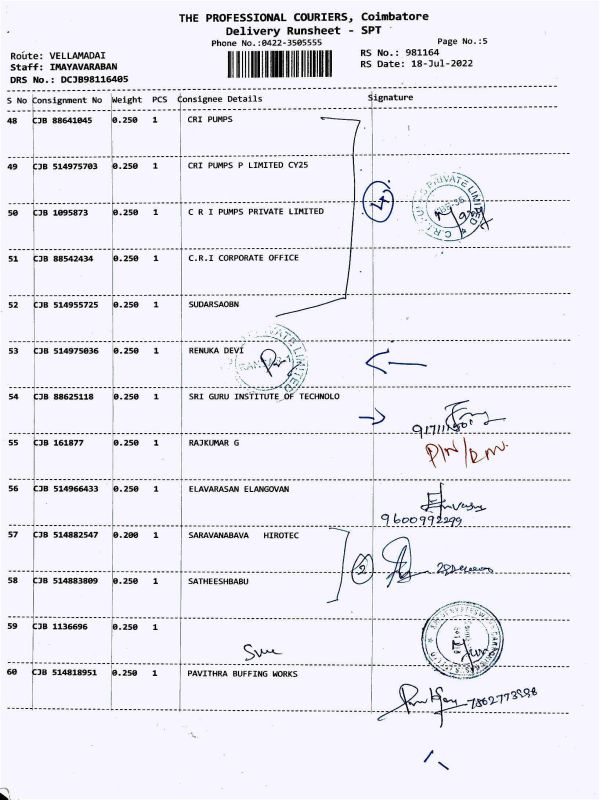 THE PROFESSIONAL COURIERS, Coimbatore
Delivery Runsheet - SPT
Phone No.:0422-3505555
Page No.:5
Route: VELLAMADAI
RS No.: 981164
Staff: IMAYAVARABAN
RS Date: 18-Jul-2022
DRS No.: DCJB98116405
S No Consignment No Weight PCS Consignee Details Signature
48 CJB 88641045 0.250 1 CRI PUMPS
49 CJB 514975703 0.250 1 CRI PUMPS P LIMITED CY25
50 CJB 1095873 0.250 1 C R I PUMPS PRIVATE LIMITED
4
51 CJB 88542434 0.250 1 C.R.I CORPORATE OFFICE
52 CJB 514955725 0.250 1 SUDARSAOBN
53 CJB 514975036 0.250 1 RENUKA DEVI
54 CJB 88625118 0.250 1 SRI GURU INSTITUTE OF TECHNOLO
55 CJB 161877 0.250 1 RAJKUMAR G
56 CJB 514966433 0.250 1 ELAVARASAN ELANGOVAN
9600992299
57 CJB 514882547 0.200 1 SARAVANABAVA HIROTEC
2
58 CJB 514883809 0.250 1 SATHEESHBABU
59 CJB 1136696 0.250 1
60 CJB 514818951 0.250 1 PAVITHRA BUFFING WORKS